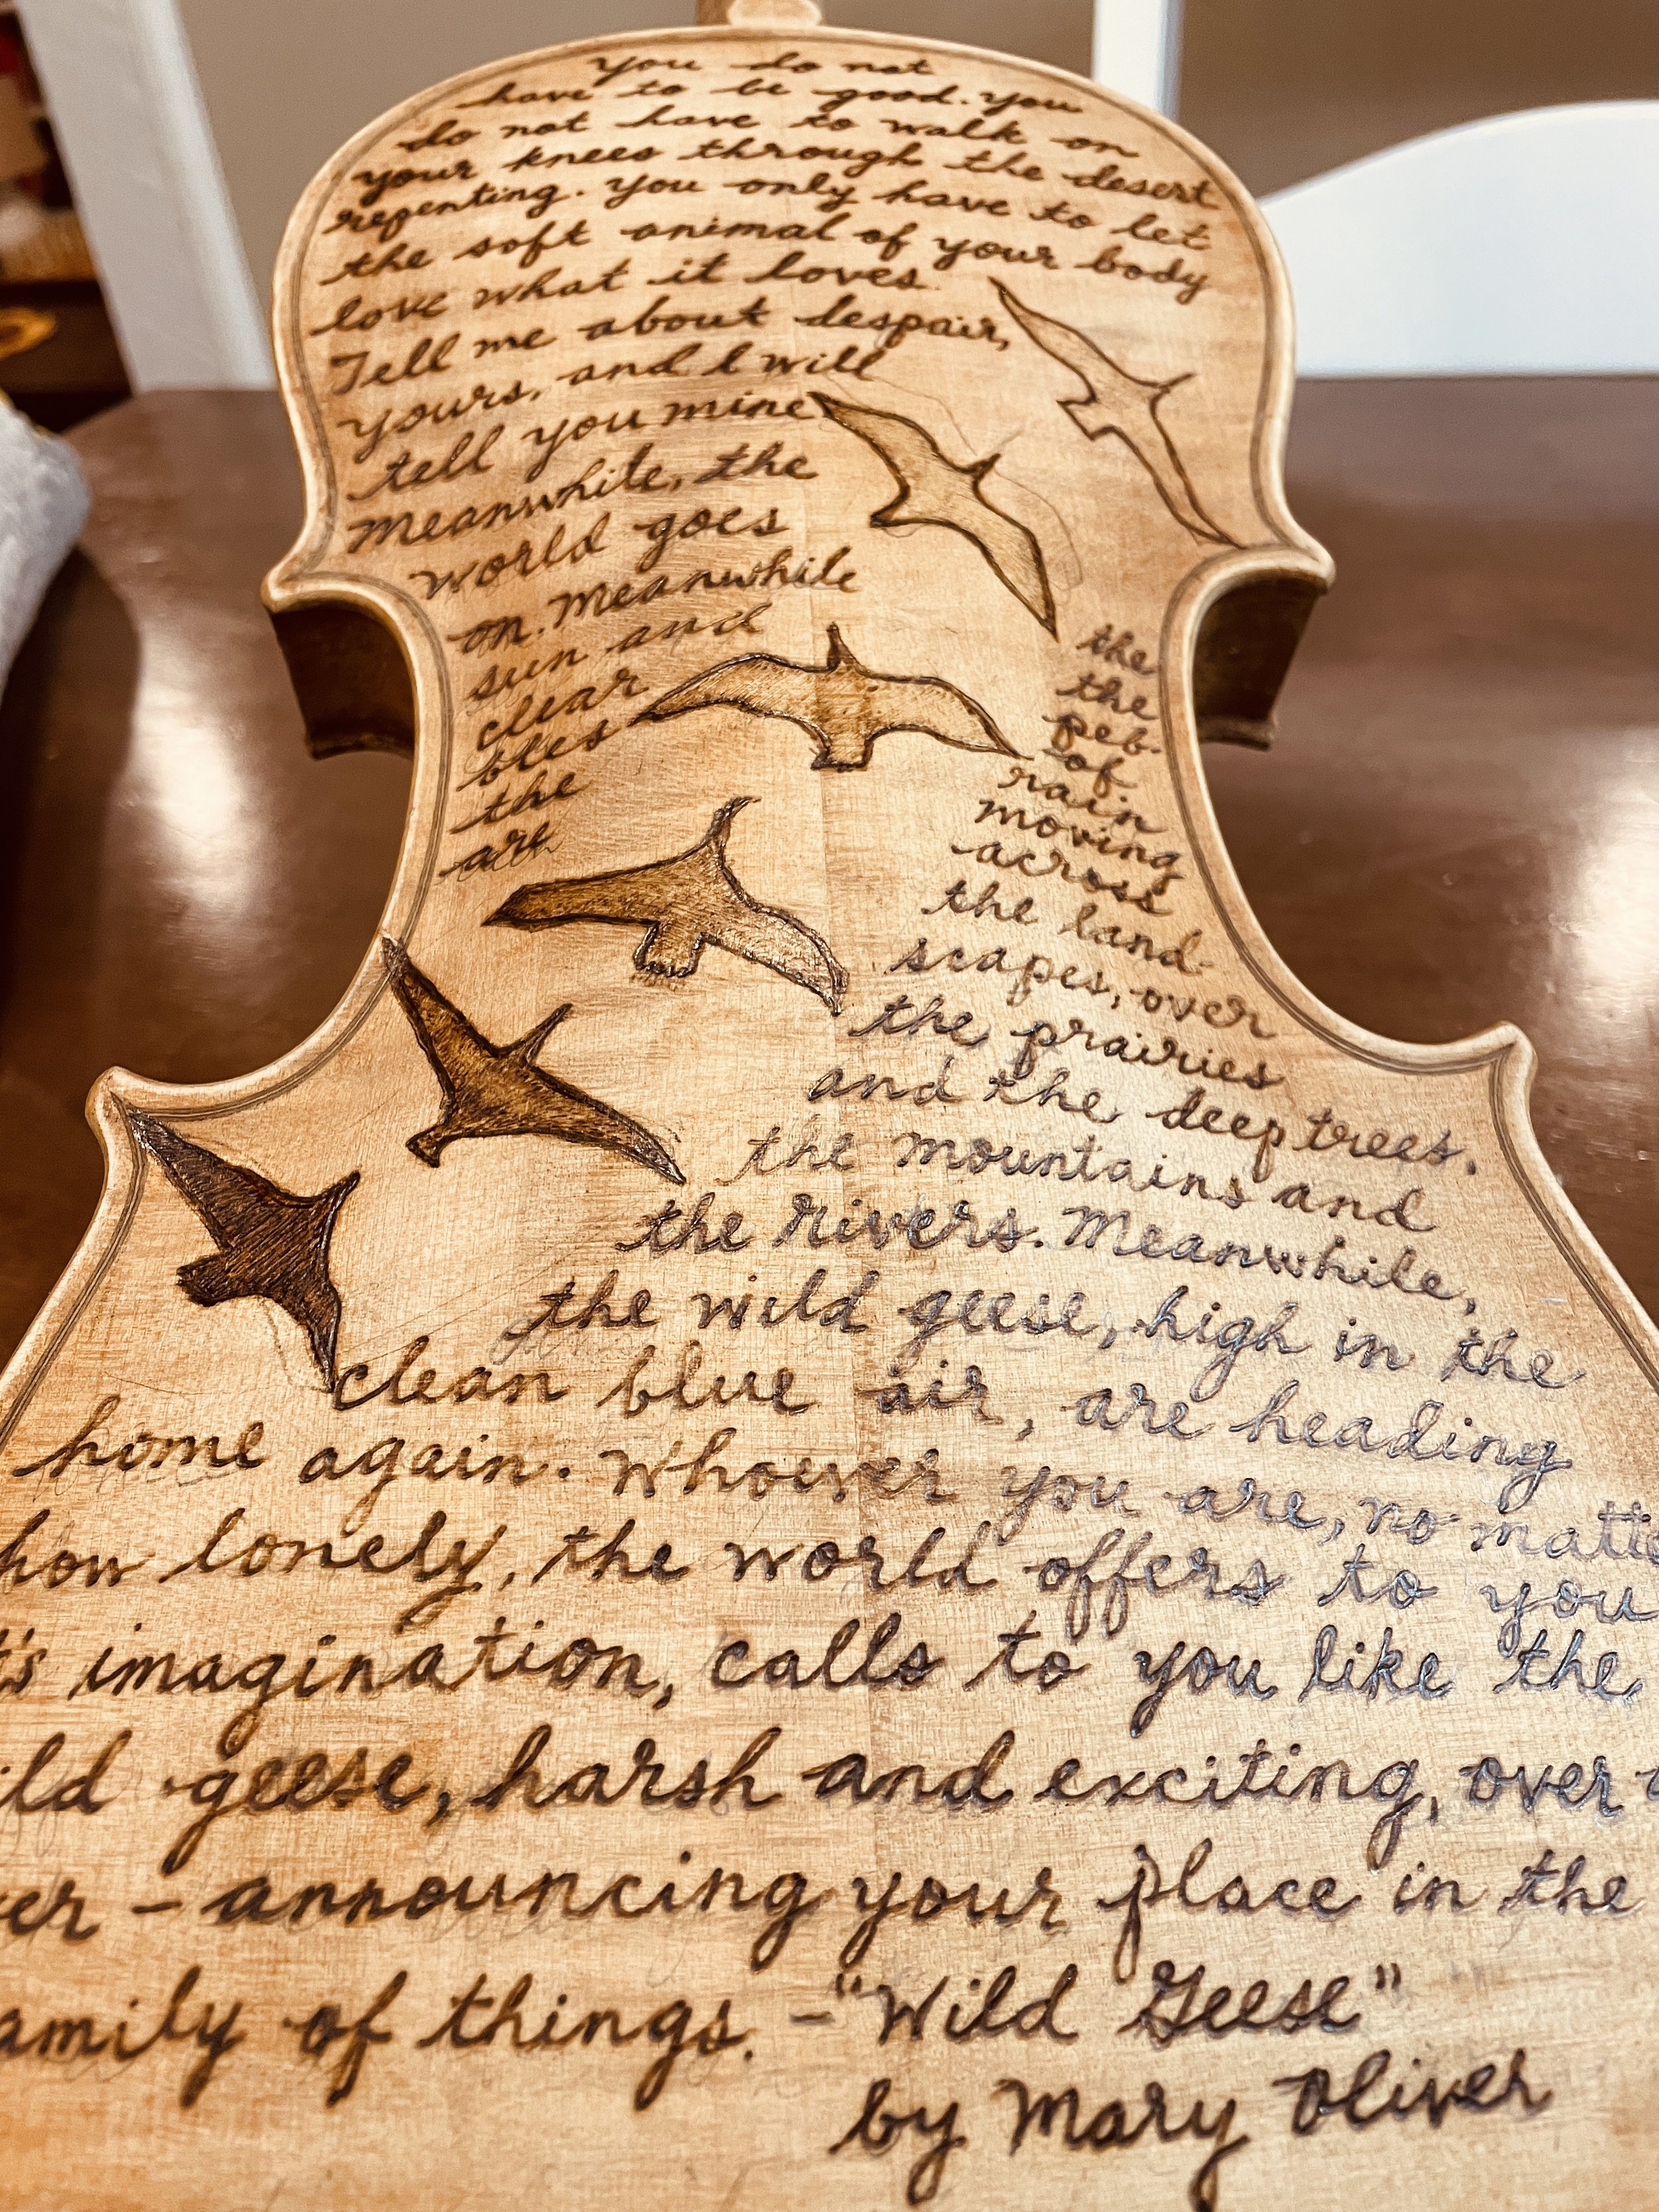 you do not
have to be good. You
do not have to walk on
your knees through the desert
repenting. You only have to let
the soft animal of your body
love what it loves.
Tell me about despair,
yours, and I will
tell you mine.
Meanwhile, the
world goes
on. Meanwhile the
sun and the
clear peb-
bles of
the rain
are moving
across
the land-
scapes, over
the prairies
and the deep trees,
the mountains and
the rivers. Meanwhile,
the wild geese, high in the
clean blue air, are heading
home again. Whoever you are, no matte
how lonely, the world offers to you
t's imagination, calls to you like the
ild geese, harsh and exciting, over
er - announcing your place in the
amily of things. - "Wild Geese"
by Mary Oliver